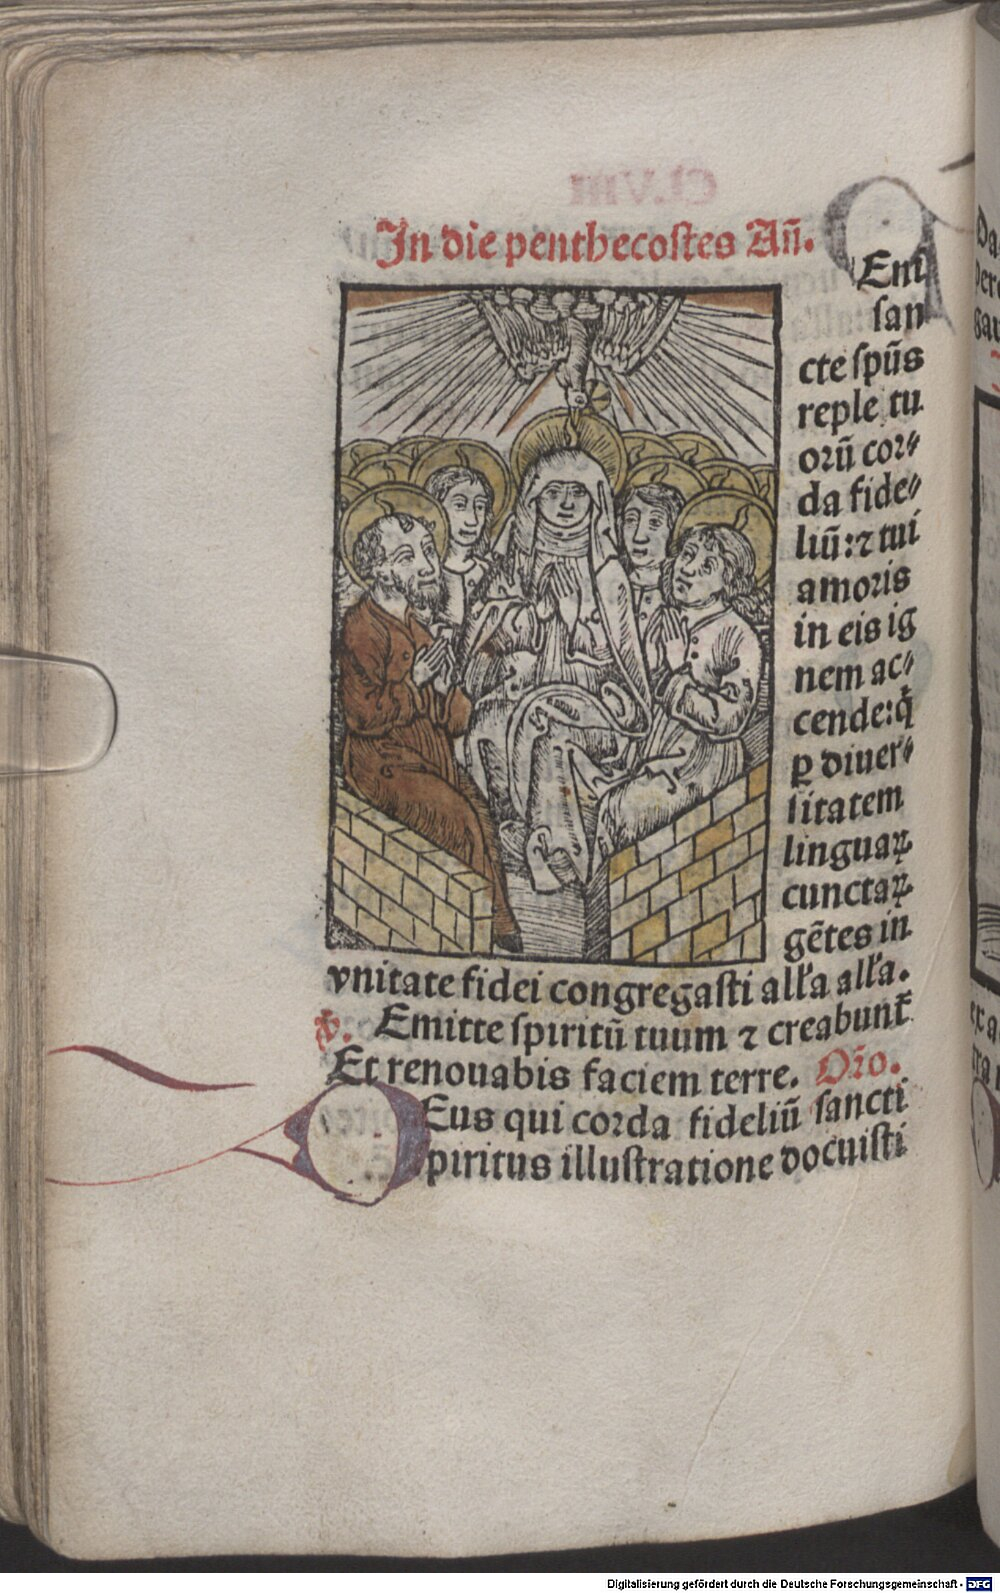 In die penthecostes An̄.
Eni
san
cte spūs
reple tu
orū cor⸗
da fide⸗
liū: ⁊ tui
amoris
in eis ig
nem ac⸗
cende: q̇
ꝑ diuer⸗
sitatem
linguaꝝ
cunctaꝝ
gētes in
vnitate fidei congregasti all'a all'a.
v̄. Emitte spiritū tuum ⁊ creabunt̄
Et renouabis faciem terre. Or̄o.
Eus qui corda fideliū sancti
spiritus illustratione docuisti
Digitalisierung gefördert durch die Deutsche Forschungsgemeinschaft - DFG